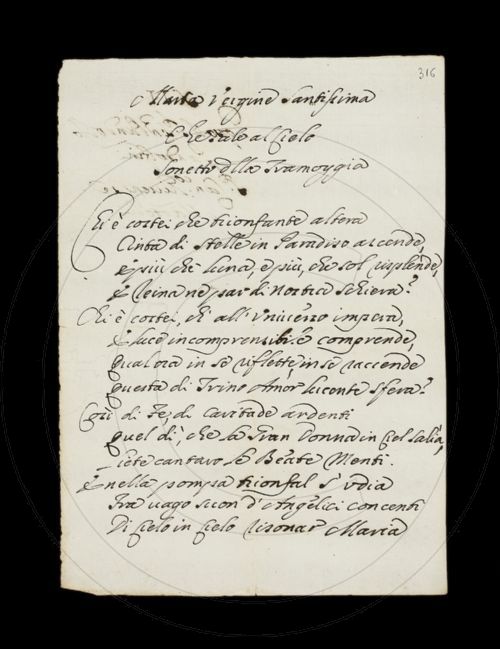 316
Maria Vergine Santissima
Che sale al Cielo
Sonetto dlla Tramoggia
Chi è costei che trionfante altera
Cinta di Stelle in Paradiso ascende,
è più che luna, e più, che sol risplende,
E Reina ne par di nostra schiera?
Chi è costei, ch' all' Universo impera,
E luce incomprensibile comprende,
qual ora in se riflette, in se raccende
questa di Trino Amor lucente Sfera?
Così di Fe, di Caritade ardenti
quel dì, che la Gran Donna in Ciel salìa,
liete cantavo le Beate Menti.
E nella pompa trionfal s' udia
Tra vago suon d' Angelici concenti
Di Cielo in Cielo risonar Maria